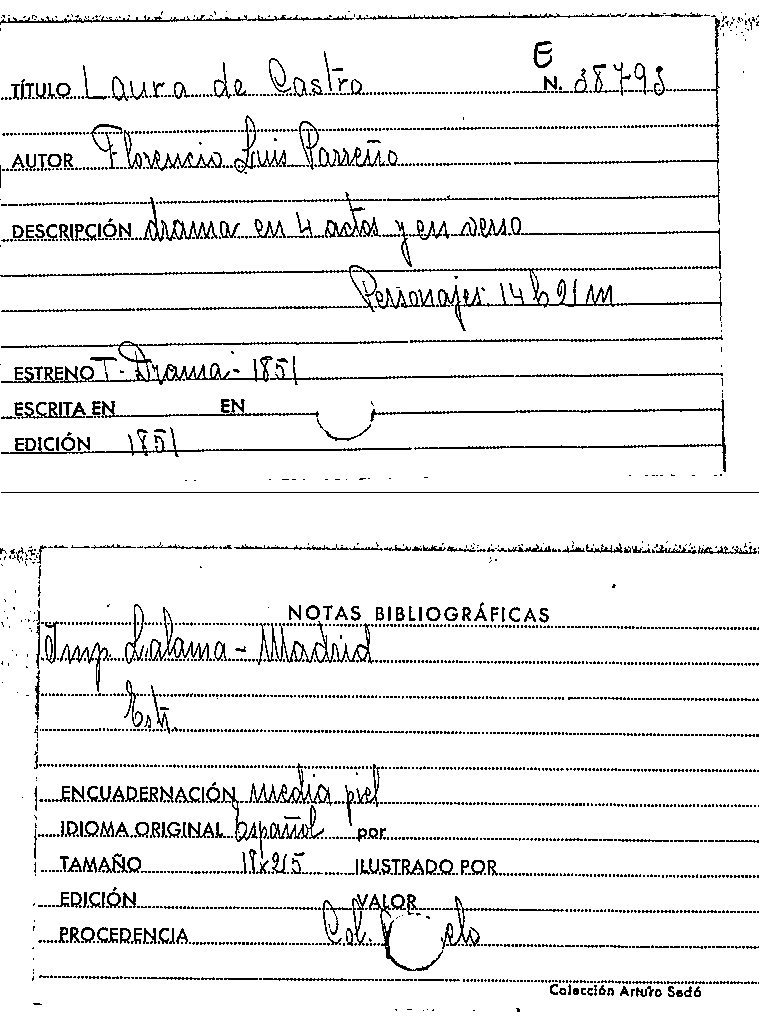 E
TÍTULO Laura de Castro N. 38793
AUTOR Florencio Luis Parreño
DESCRIPCIÓN drama en 4 actos y en verso
Personajes 14 h 2 m
ESTRENO T. Drama - 1851
ESCRITA EN EN
EDICIÓN 1851
NOTAS BIBLIOGRÁFICAS
Imp. Lalama - Madrid
Estr.
ENCUADERNACIÓN media piel
IDIOMA ORIGINAL Español por
TAMAÑO ILUSTRADO POR
EDICIÓN VALOR
PROCEDENCIA Col.
Colección Arturo Sedó